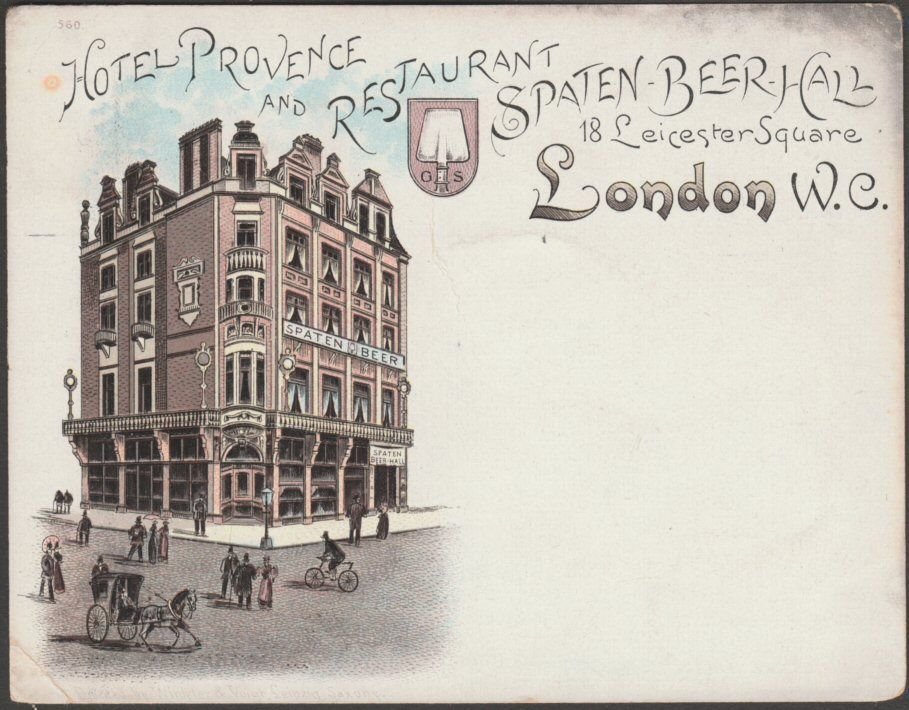 560.
HOTEL PROVENCE
AND RESTAURANT
SPATEN-BEER-HALL
18 Leicester Square
London W.C.
G S
SPATEN BEER
SPATEN
BEER-HALL
Winkler & Voigt Leipzig Saxony.